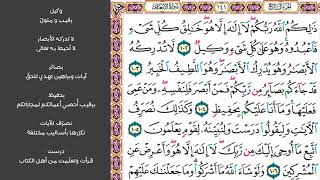 ١٤١
ذَٰلِكُمُ ٱللَّهُ رَبُّكُمْ لَآ إِلَٰهَ إِلَّا هُوَ خَٰلِقُ كُلِّ شَىْءٍ
فَٱعْبُدُوهُ وَهُوَ عَلَىٰ كُلِّ شَىْءٍ وَكِيلٌ ١٠٢ لَّا تُدْرِكُهُ
ٱلْأَبْصَٰرُ وَهُوَ يُدْرِكُ ٱلْأَبْصَٰرَ وَهُوَ ٱللَّطِيفُ ٱلْخَبِيرُ ١٠٣
قَدْ جَآءَكُم بَصَآئِرُ مِن رَّبِّكُمْ فَمَنْ أَبْصَرَ فَلِنَفْسِهِۦ وَمَنْ عَمِىَ
فَعَلَيْهَا وَمَآ أَنَا۠ عَلَيْكُم بِحَفِيظٍ ١٠٤ وَكَذَٰلِكَ نُصَرِّفُ
ٱلْءَايَٰتِ وَلِيَقُولُوا۟ دَرَسْتَ وَلِنُبَيِّنَهُۥ لِقَوْمٍ يَعْلَمُونَ ١٠٥
ٱتَّبِعْ مَآ أُوحِىَ إِلَيْكَ مِن رَّبِّكَ لَآ إِلَٰهَ إِلَّا هُوَ وَأَعْرِضْ عَنِ
ٱلْمُشْرِكِينَ ١٠٦ وَلَوْ شَآءَ ٱللَّهُ مَآ أَشْرَكُوا۟ وَمَا جَعَلْنَٰكَ عَلَيْهِمْ
وكيل
رقيب و متول
لا تدركه الأبصار
لا تحيط به تعالى
بصائر
آيات وبراهين تهدي للحق
بحفيظ
برقيب أحصي أعمالكم لمجازاتكم
نصرّف الآيات
نكررها بأساليب مختلفة
درست
قرأت وتعلمت من أهل الكتاب